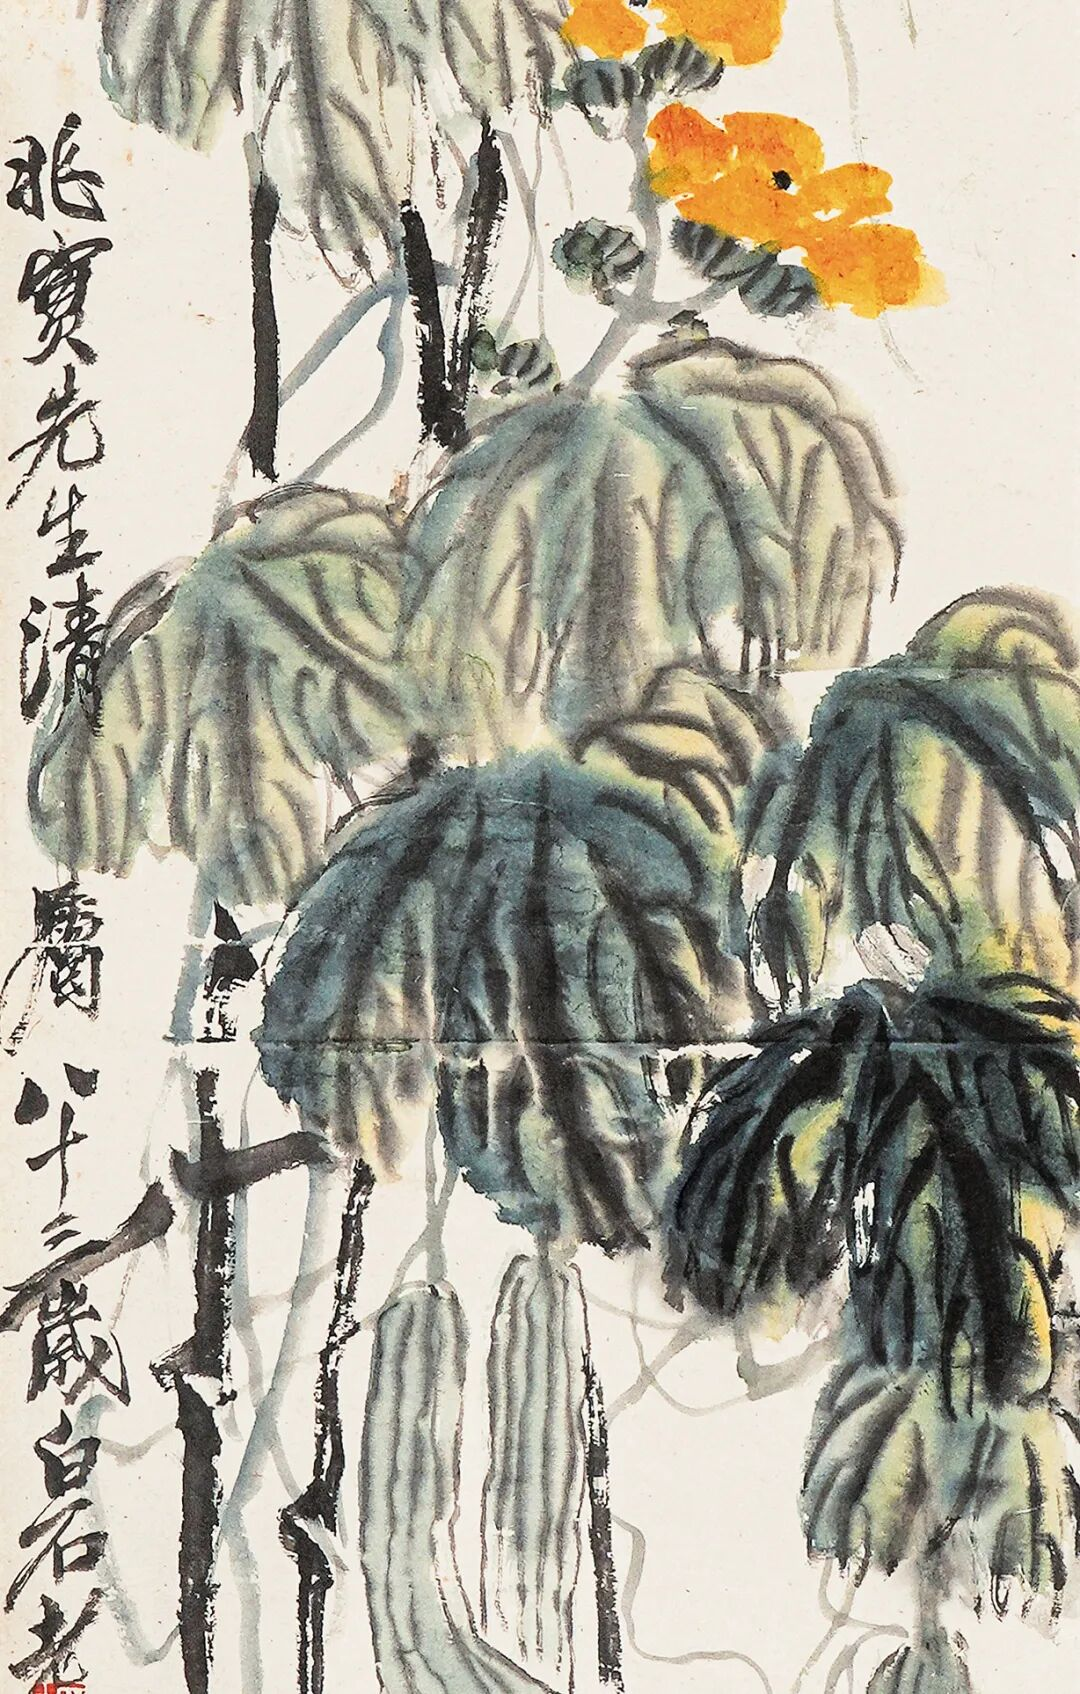 兆寶先生清屬八十三歲白石老